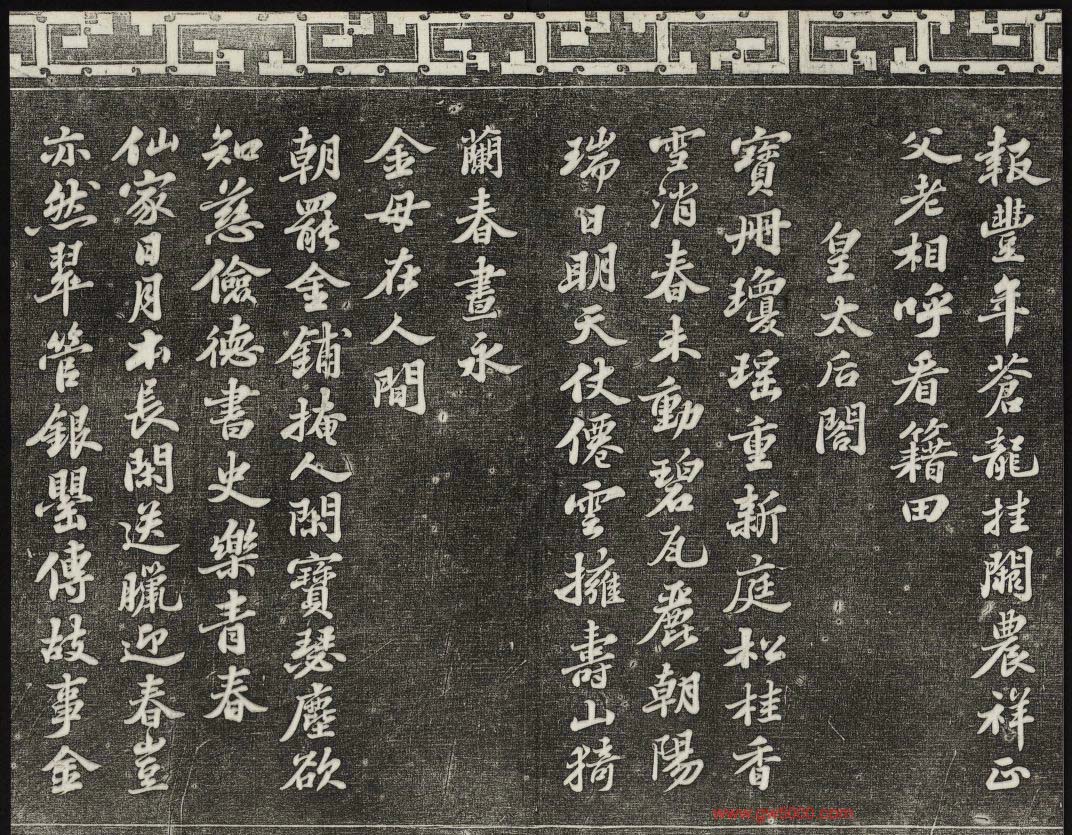 報豐年蒼龍挂闕農祥正
父老相呼看籍田
皇太后閤
寶冊瓊瑤重新庭松桂香
雪消春未動碧瓦麗朝陽
瑞日明天仗僊雲擁壽山猗
蘭春晝永
金母在人間
朝罷金鋪掩人閑寶瑟塵欲
知慈儉德書史樂青春
仙家日月本長閑送臘迎春豈
亦然翠管銀罌傳故事金
www.gw5000.com